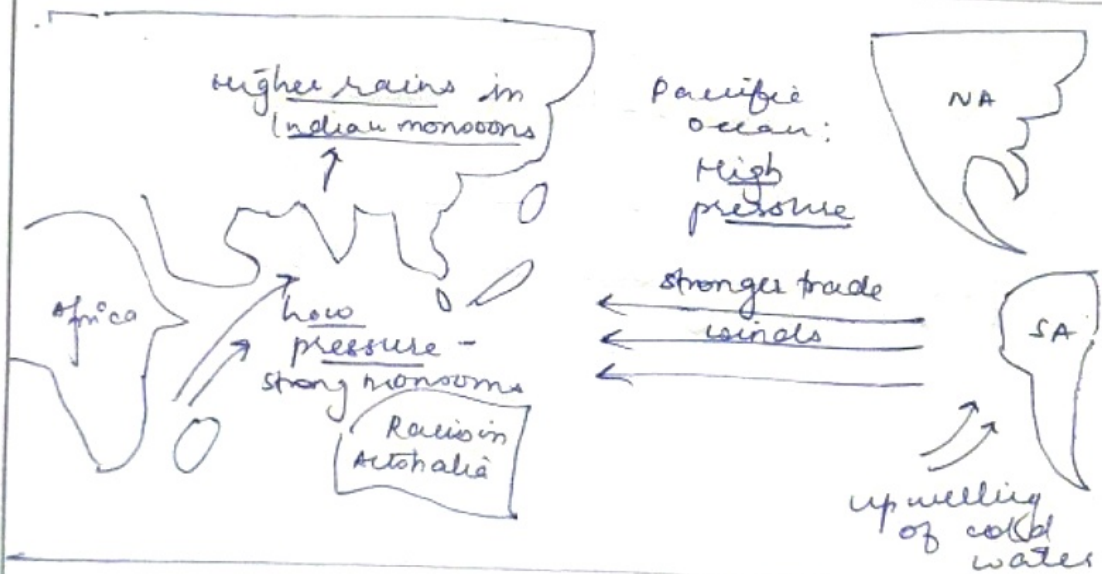 Higher rains in
Indian monsoons
Pacific
ocean:
High
pressure
NA
Africa
Low
pressure -
strong monsoons
stronger trade
winds
SA
Rains in
upwelling
of cold
water